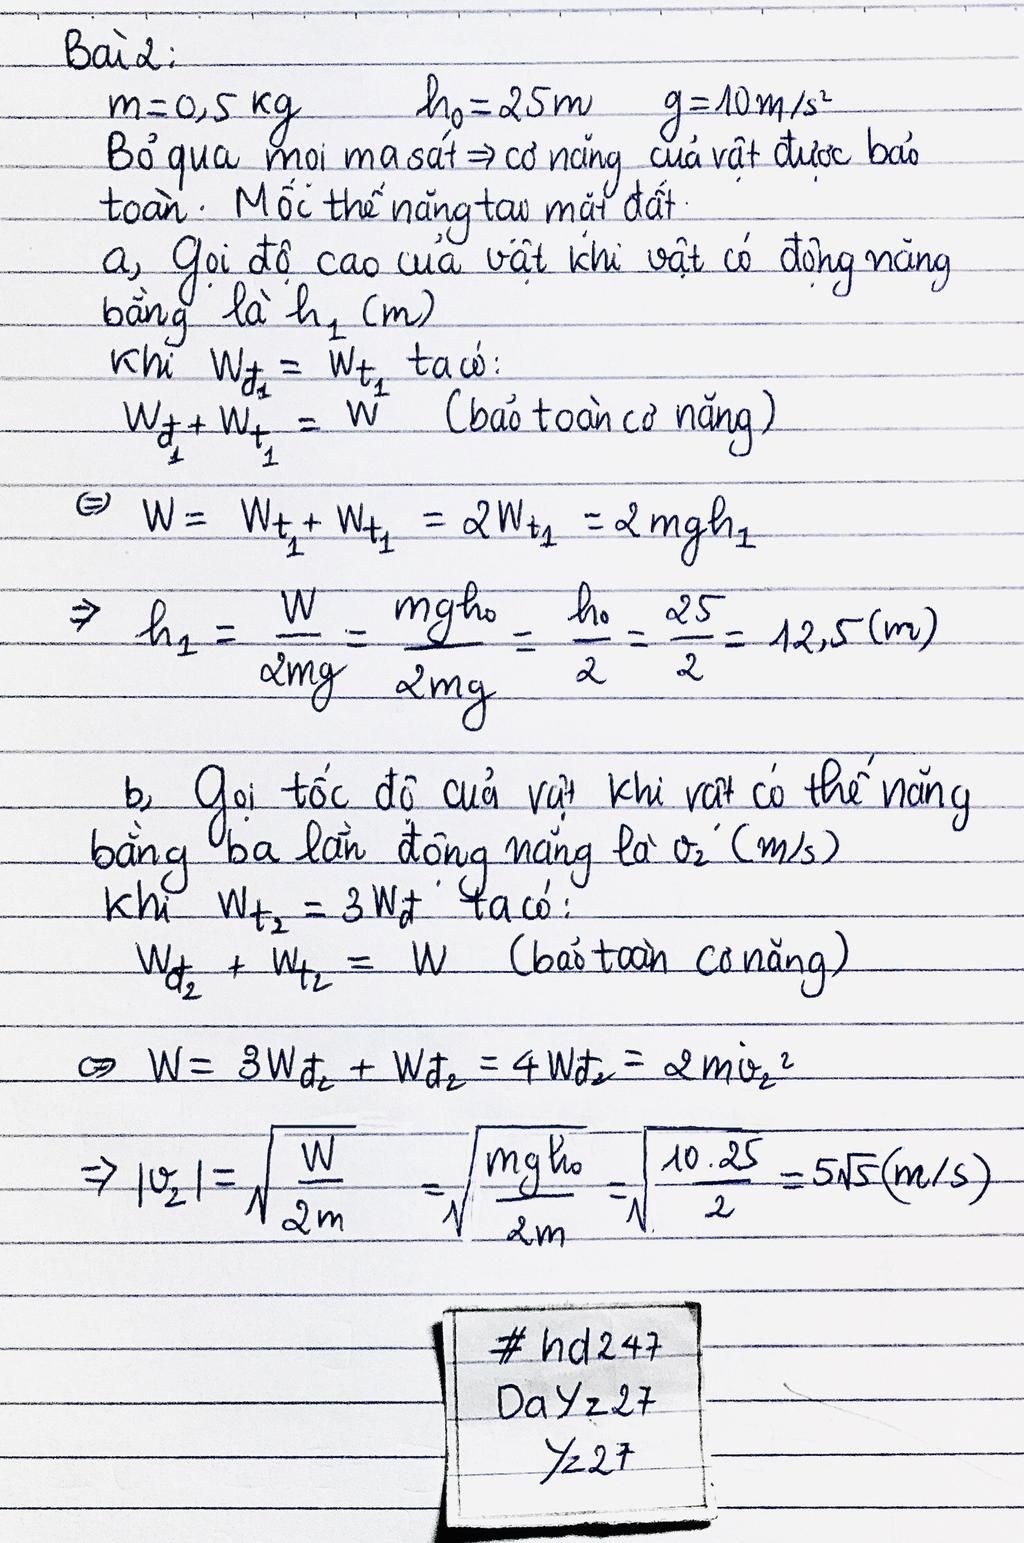 Bài 2:
m = 0,5 kg h₀ = 25m g = 10m/s²
Bỏ qua mọi ma sát ⇒ cơ năng của vật được bảo
toàn. Mốc thế năng tại mặt đất.
a, Gọi độ cao của vật khi vật có động năng
bằng là h₁ (m)
Khi Wđ₁ = Wt₁ ta có:
Wđ₁ + Wt₁ = W (bảo toàn cơ năng)
⇔ W = Wt₁ + Wt₁ = 2Wt₁ = 2mgh₁
⇒ h₁ = W/2mg = mgh₀/2mg = h₀/2 = 25/2 = 12,5 (m)
b, Gọi tốc độ của vật khi vật có thế năng
bằng ba lần động năng là v₂ (m/s)
Khi Wt₂ = 3Wđ ta có:
Wđ₂ + Wt₂ = W (bảo toàn cơ năng)
⇔ W = 3Wđ₂ + Wđ₂ = 4Wđ₂ = 2mv₂²
⇒ |v₂| = √(W/2m) = √(mgh₀/2m) = √(10.25/2) = 5√5 (m/s)
# hd247
DaYz27
Yz27